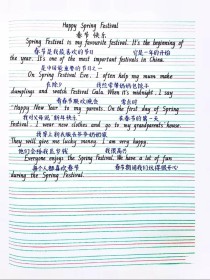 Happy Spring Festival
春节快乐
Spring Festival is my favourite festival. It's the beginning of
春节是我最喜欢的节日 它是一年的开始
the year. It's one of the most important festivals in China.
是中国最重要的节日之一
On Spring Festival Eve, I often help my mum make
在除夕 我经常帮妈妈包饺子
dumplings and watch Festival Gala. When it's midnight, I say
看春节联欢晚会 当午夜时
"Happy New Year" to my parents. On the first day of Spring
我对父母说新年快乐 在春节的第一天
Festival, I wear new clothes and go to my grandparents' house.
我穿上新衣服去爷爷奶奶家
They will give me lucky money. I am very happy.
他们会给我压岁钱 我很高兴
Everyone enjoys the Spring Festival. We have a lot of fun
每个人都喜欢春节 春节期间我们玩得很开心
during the Spring Festival.